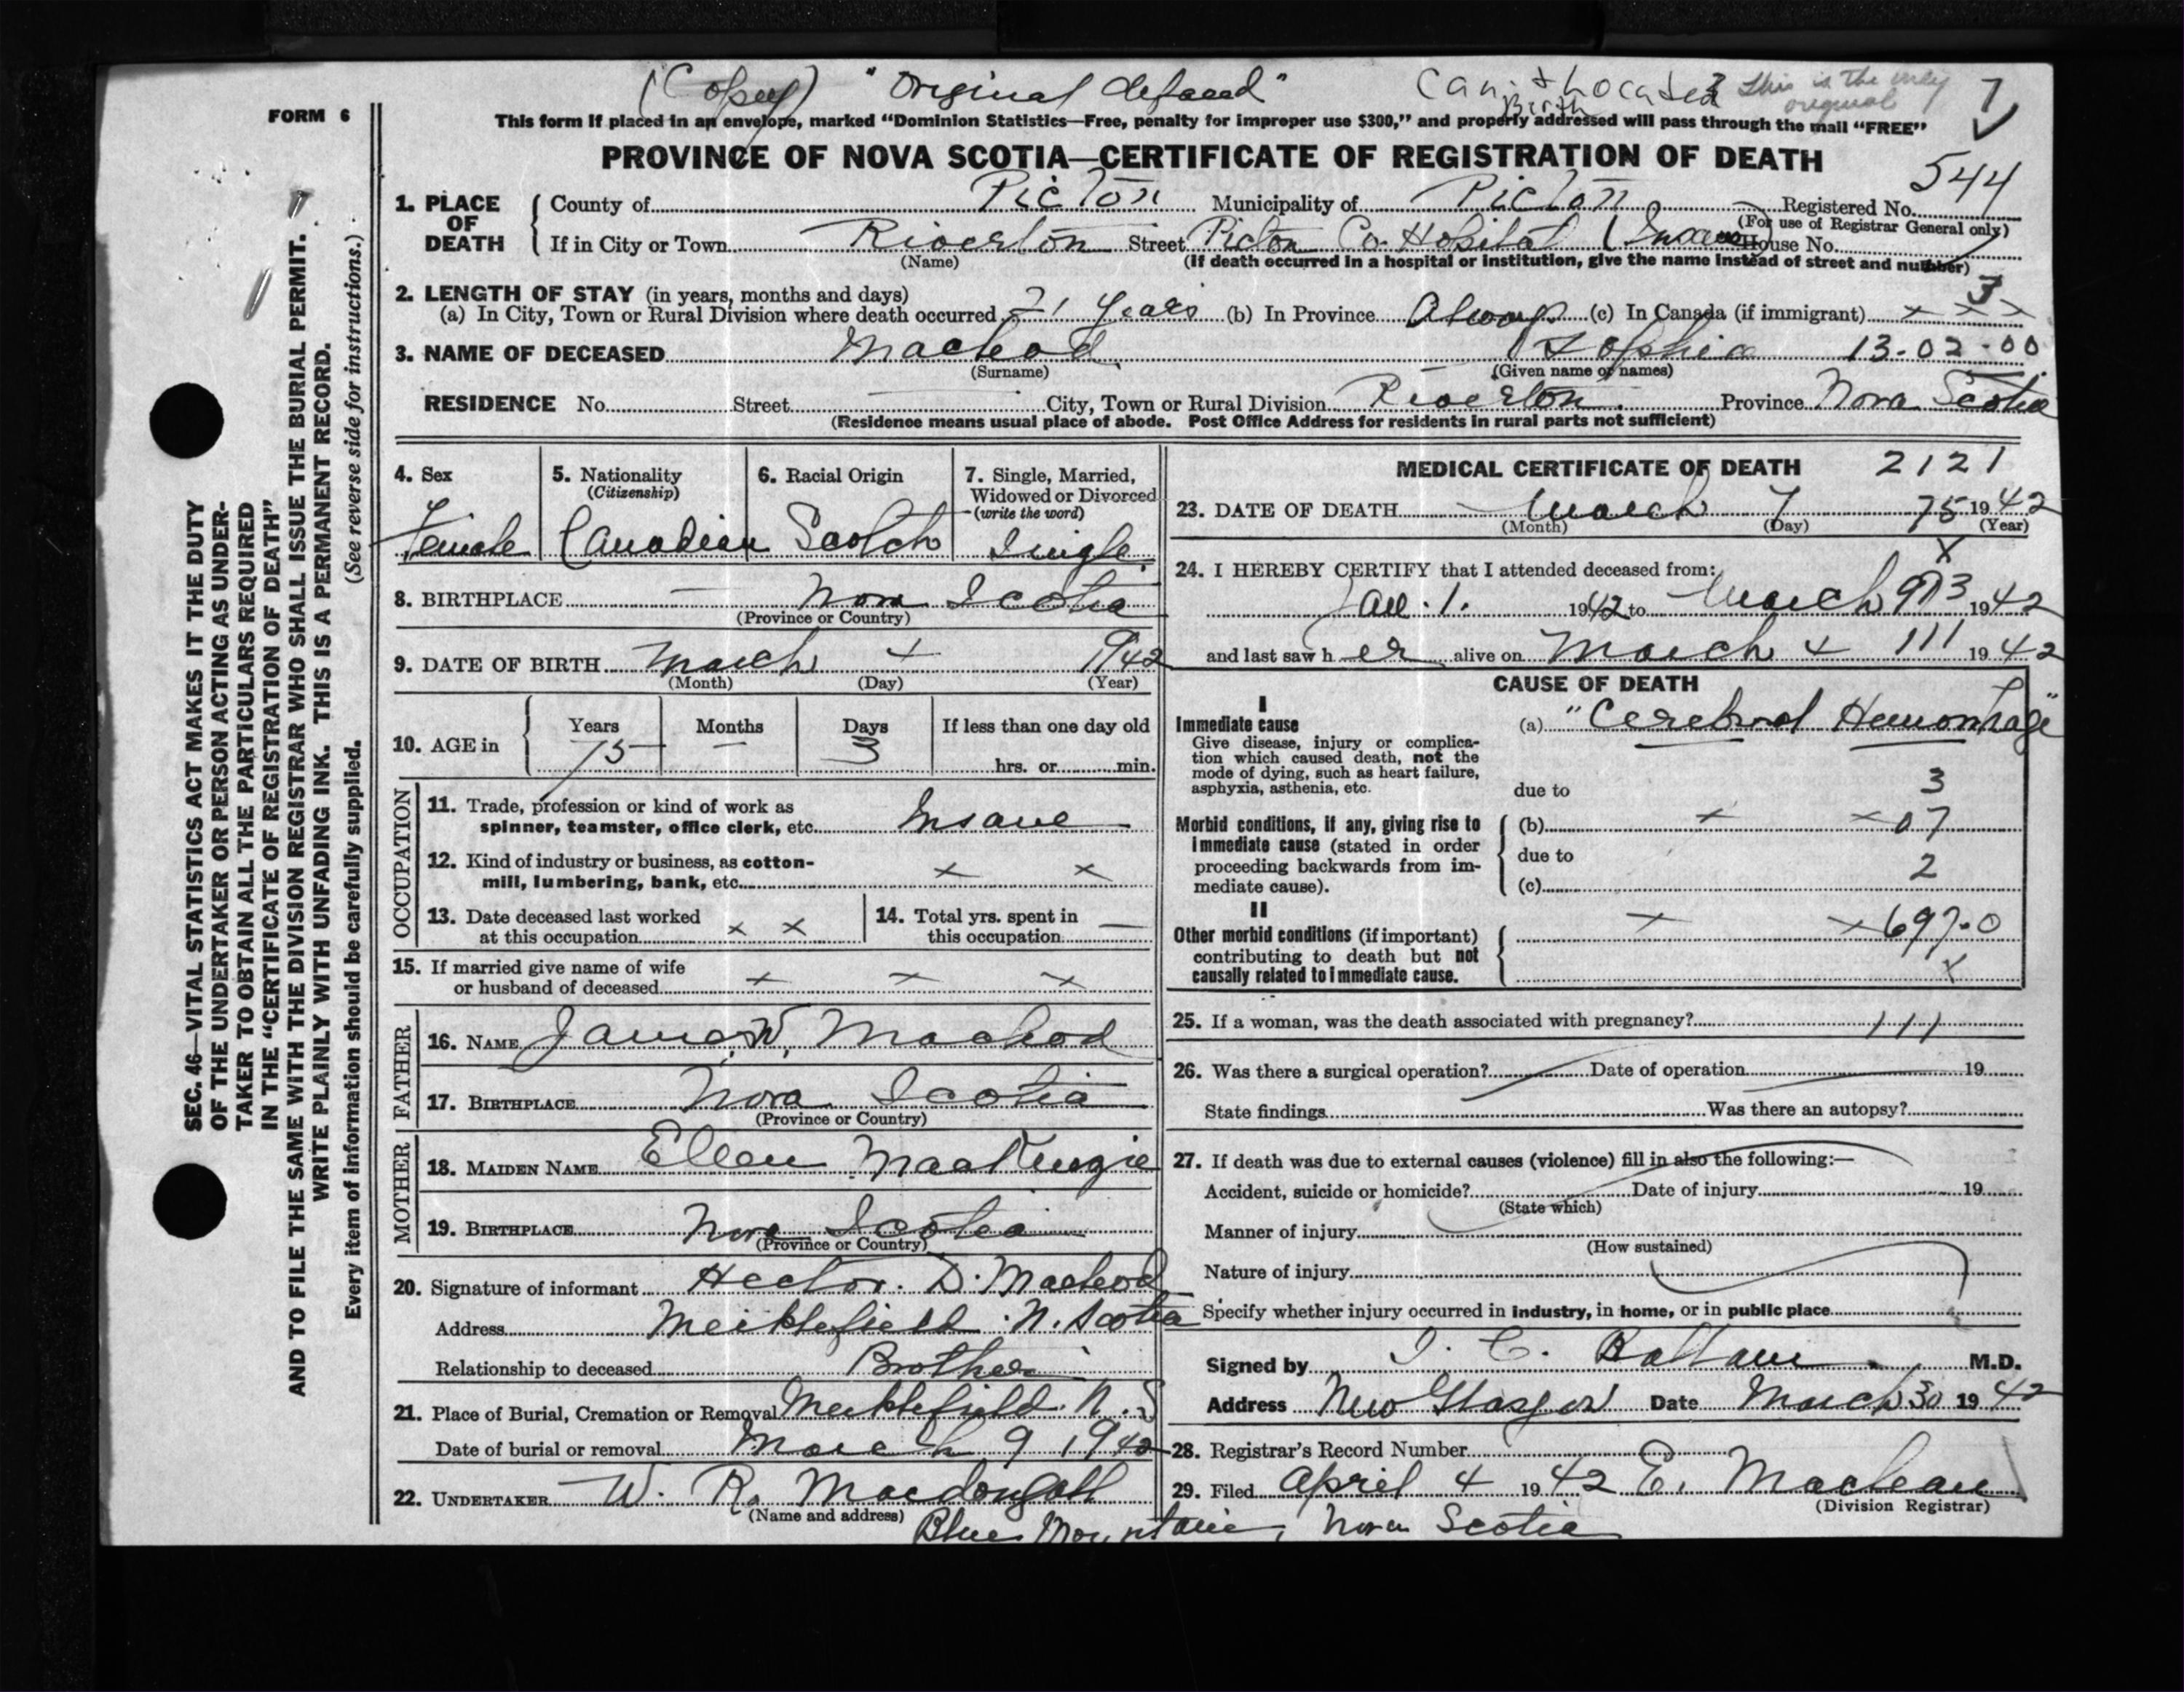 (Copy) "Original defaced" Can't Locate Birth This is the only original 7
FORM 6
This form if placed in an envelope, marked "Dominion Statistics—Free, penalty for improper use $300," and properly addressed will pass through the mail "FREE"
PROVINCE OF NOVA SCOTIA—CERTIFICATE OF REGISTRATION OF DEATH
544
1. PLACE OF DEATH County of Picton Municipality of Picton Registered No.
(For use of Registrar General only)
If in City or Town Riverton Street Picton Co. Hospital (Insane) House No.
(Name) (If death occurred in a hospital or institution, give the name instead of street and number)
2. LENGTH OF STAY (in years, months and days) 3
(a) In City, Town or Rural Division where death occurred 21 years (b) In Province Always (c) In Canada (if immigrant) x x x
3. NAME OF DECEASED Macleod Sophia 13-02-00
(Surname) (Given name or names)
RESIDENCE No. Street City, Town or Rural Division Riverton. Province Nova Scotia
(Residence means usual place of abode. Post Office Address for residents in rural parts not sufficient)
4. Sex 5. Nationality (Citizenship) 6. Racial Origin 7. Single, Married, Widowed or Divorced (write the word)
Female Canadian Scotch Single.
8. BIRTHPLACE Nova Scotia
(Province or Country)
9. DATE OF BIRTH March 4 1942
(Month) (Day) (Year)
10. AGE in Years Months Days If less than one day old
75 — 3 hrs. or min.
OCCUPATION
11. Trade, profession or kind of work as spinner, teamster, office clerk, etc. Insane
12. Kind of industry or business, as cotton-mill, lumbering, bank, etc. x x
13. Date deceased last worked at this occupation x x 14. Total yrs. spent in this occupation —
15. If married give name of wife or husband of deceased x x x
FATHER
16. NAME James W. Macleod
17. BIRTHPLACE Nova Scotia
(Province or Country)
MOTHER
18. MAIDEN NAME Ellen MacKenzie
19. BIRTHPLACE Nova Scotia
(Province or Country)
20. Signature of informant Hector. D. Macleod
Address Meiklefield N. Scotia
Relationship to deceased Brother
21. Place of Burial, Cremation or Removal Meiklefield. N.S
Date of burial or removal March 9 1942
22. UNDERTAKER W. R. Macdougall
(Name and address) Blue Mountain, Nova Scotia
MEDICAL CERTIFICATE OF DEATH 2121
23. DATE OF DEATH March 7 75 1942
(Month) (Day) (Year)
x
24. I HEREBY CERTIFY that I attended deceased from:
Jan. 1. 1942 to March 973 1942
and last saw h er alive on March 4 111 1942
CAUSE OF DEATH
I
Immediate cause (a) "Cerebral Hemorrhage"
Give disease, injury or complication which caused death, not the mode of dying, such as heart failure, asphyxia, asthenia, etc.
due to 3
Morbid conditions, if any, giving rise to immediate cause (stated in order proceeding backwards from immediate cause).
(b) x x 07
due to 2
(c)
II
Other morbid conditions (if important) contributing to death but not causally related to immediate cause.
x x 697.0
x
25. If a woman, was the death associated with pregnancy? 111
26. Was there a surgical operation? Date of operation 19
State findings Was there an autopsy?
27. If death was due to external causes (violence) fill in also the following:—
Accident, suicide or homicide? Date of injury 19
(State which)
Manner of injury
(How sustained)
Nature of injury
Specify whether injury occurred in industry, in home, or in public place
Signed by M.D.
Address New Glasgow Date March 30 1942
28. Registrar's Record Number
29. Filed April 4 1942 E. Maclean
(Division Registrar)
SEC. 46—VITAL STATISTICS ACT MAKES IT THE DUTY
OF THE UNDERTAKER OR PERSON ACTING AS UNDER-
TAKER TO OBTAIN ALL THE PARTICULARS REQUIRED
IN THE "CERTIFICATE OF REGISTRATION OF DEATH"
AND TO FILE THE SAME WITH THE DIVISION REGISTRAR WHO SHALL ISSUE THE BURIAL PERMIT.
WRITE PLAINLY WITH UNFADING INK. THIS IS A PERMANENT RECORD.
Every item of information should be carefully supplied. (See reverse side for instructions.)